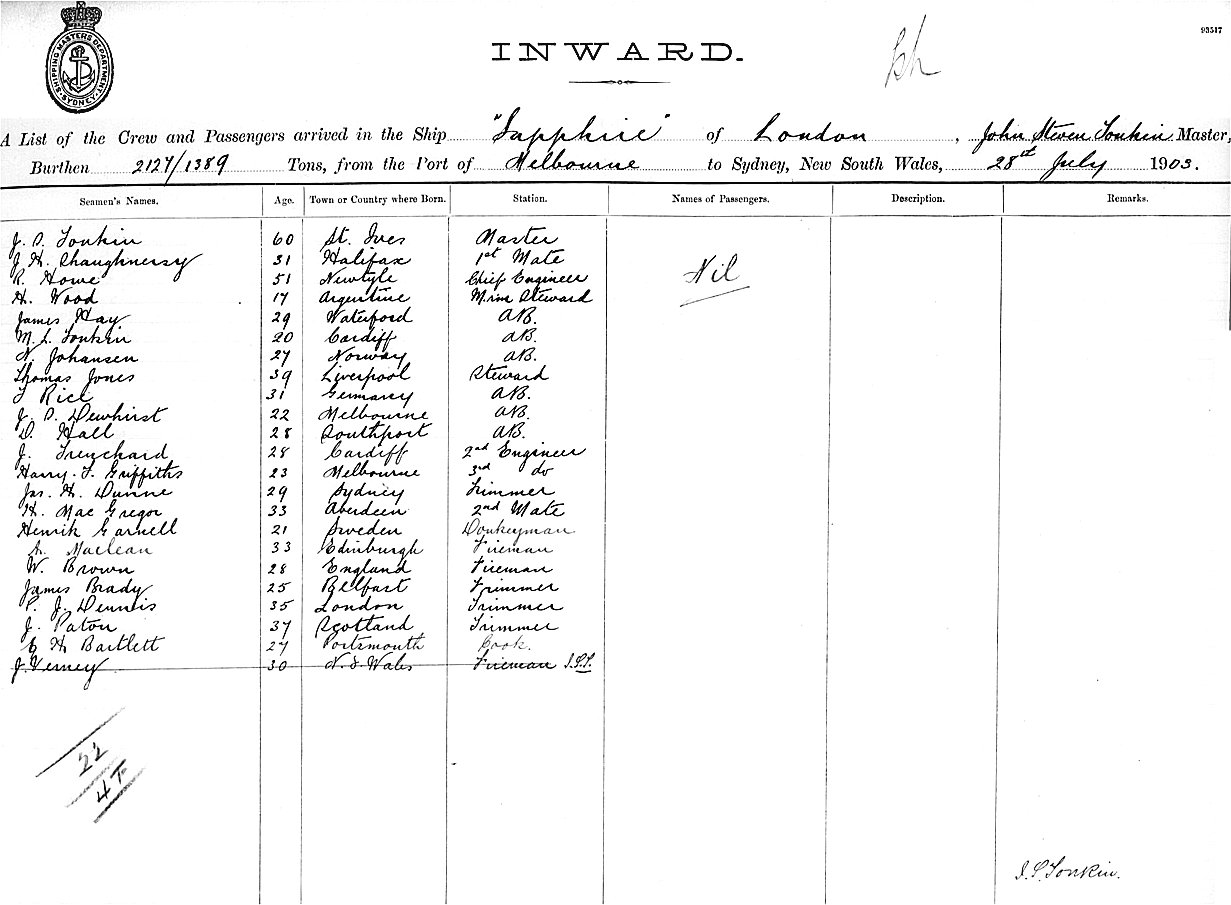 SHIPPING MASTERS DEPARTMENT
SYDNEY
93517
INWARD.
A List of the Crew and Passengers arrived in the Ship "Sapphire" of London, John Steven Tonkin Master,
Burthen 2127/1389 Tons, from the Port of Melbourne to Sydney, New South Wales, 28th July 1903.
Seamen's Names. Age. Town or Country where Born. Station. Names of Passengers. Description. Remarks.
J. S. Tonkin 60 St. Ives Master
J. H. Shaughnessy 31 Halifax 1st Mate
R. Howe 51 Newtyle Chief Engineer
Nil
H. Wood 17 Argentine M. rm Steward
James Hay 29 Waterford AB.
M. L. Tonkin 20 Cardiff AB.
N. Johansen 27 Norway AB.
Thomas Jones 39 Liverpool Steward
Rice 31 Germany AB.
J. S. Dewhirst 22 Melbourne AB.
D. Hall 28 Southport AB.
J. Trenchard 28 Cardiff 2nd Engineer
Harry. T. Griffiths 23 Melbourne 3rd do
Jas. H. Dunne 29 Sydney Trimmer
H. Mac Gregor 33 Aberdeen 2nd Mate
Henrik Garnell 21 Sweden Donkeyman
Maclean 33 Edinburgh Fireman
W. Brown 28 England Fireman
James Brady 25 Belfast Trimmer
P. J. Dennis 35 London Trimmer
J. Paton 37 Scotland Trimmer
H Bartlett 27 Portsmouth Cook.
J. Verney 30 N. S. Wales Fireman J.S.T.
22
4
J. S. Tonkin.